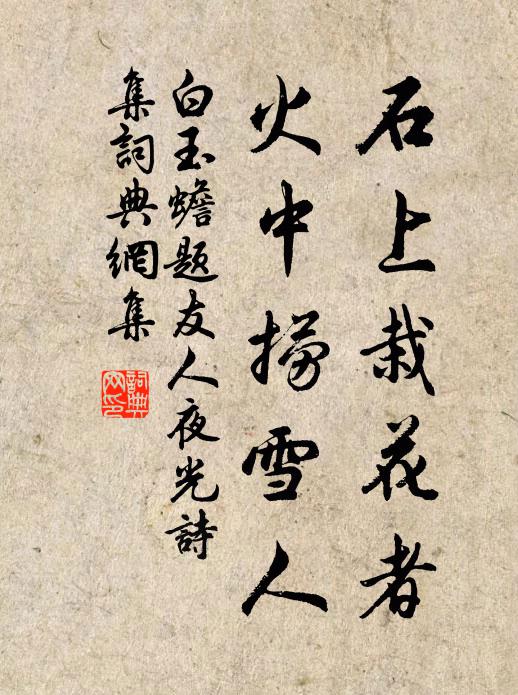 石上栽花者
火中撈雪人
白玉蟾題友人夜光詩
集詞典網集
詞典
网印